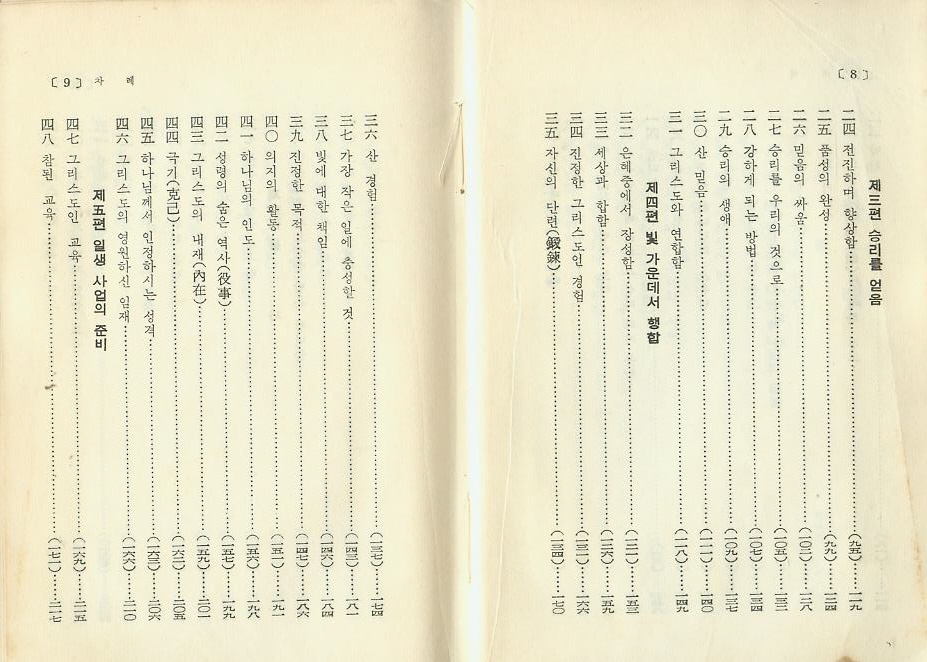 〔8〕
제三편 승리를 얻음
二四 전진하며 향상함……(九五)……一一九
二五 품성의 완성……(九九)……一二四
二六 믿음의 싸움……(一〇二)……一二八
二七 승리를 우리의 것으로……(一〇五)……一三二
二八 강하게 되는 방법……(一〇七)……一三四
二九 승리의 생애……(一〇九)……一三七
三〇 산 믿음……(一一一)……一四〇
三一 그리스도와 연합함……(一一八)……一四九
제四편 빛 가운데서 행함
三二 은혜중에서 장성함……(一二一)……一五三
三三 세상과 합함……(一二六)……一五九
三四 진정한 그리스도인 경험……(一三一)……一六六
三五 자신의 단련(鍛鍊)……(一三四)……一七〇
〔9〕 차 례
三六 산 경험……(一三七)……一七四
三七 가장 작은 일에 충성할 것……(一四三)……一八一
三八 빛에 대한 책임……(一四六)……一八四
三九 진정한 목적……(一四七)……一八六
四〇 의지의 활동……(一五一)……一九一
四一 하나님의 인도……(一五六)……一九八
四二 성령의 숨은 역사(役事)……(一五七)……一九九
四三 그리스도의 내재(內在)……(一五九)……二〇一
四四 극기(克己)……(一六二)……二〇五
四五 하나님께서 인정하시는 성격……(一六三)……二〇六
四六 그리스도의 영원하신 임재……(一六六)……二一〇
제五편 일생 사업의 준비
四七 그리스도인 교육……(一六九)……二一五
四八 참된 교육……(一七一)……二一七